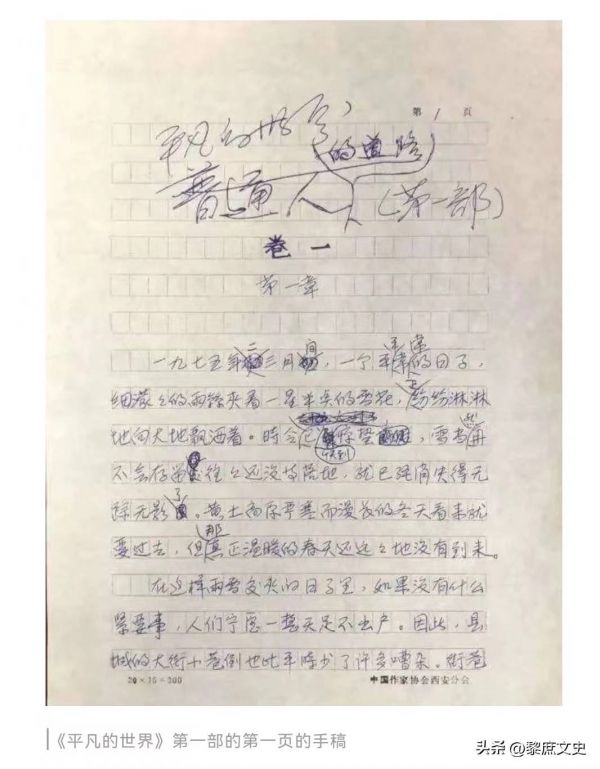 第 1 页
平凡的世界
的道路
普通人(第一部)
卷一
第一章
一九七五年二三月间,一个平平常常的日子,
细濛々的雨丝夹着一星半点的雪花,正纷纷淋淋
地向大地飘洒着。时令已快到惊蛰,雪当然再
不会存留,往々还没等落地,就已经消失得无
踪无影了。黄土高原严寒而漫长的冬天看来就
要过去,但那真正温暖的春天还远々地没有到来。
在这样雨雪交夹的日子里,如果没有什么
紧要事,人们宁愿一整天足不出户。因此,县
城的大街小巷倒也比平时少了许多嘈杂。街巷
20×15=300 中国作家协会西安分会
《平凡的世界》第一部的第一页的手稿
头条 @黎庶文史